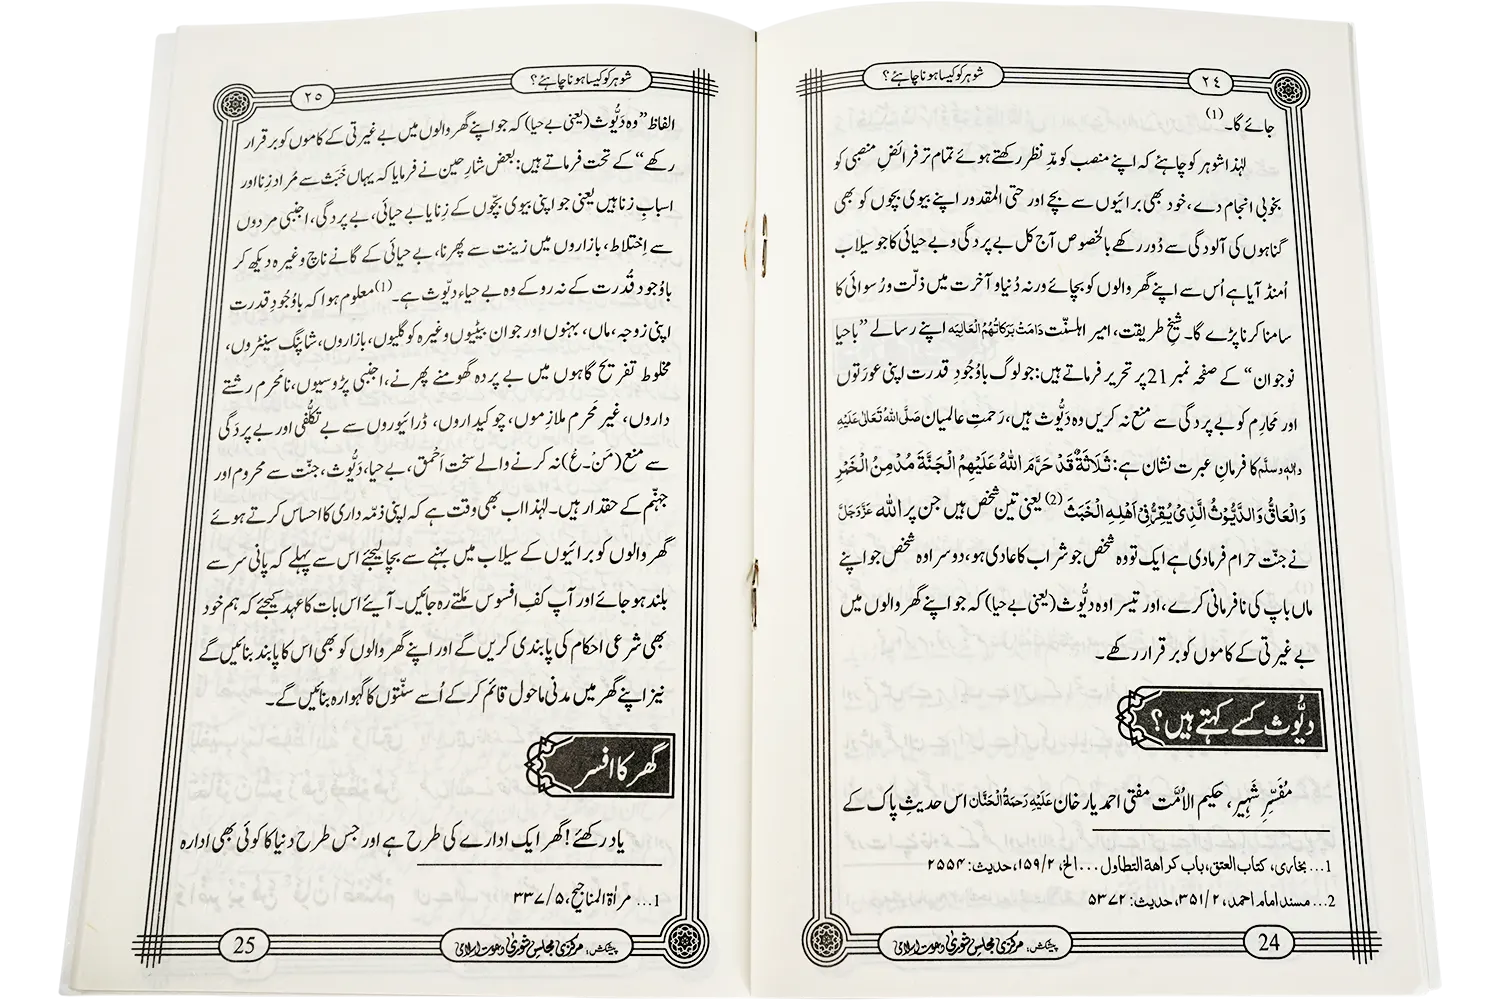 شوہر کو کیسا ہونا چاہئے؟
٢٤
جائے گا۔(1)
لہٰذا شوہر کو چاہئے کہ اپنے منصب کو مدِّ نظر رکھتے ہوئے تمام تر فرائضِ منصبی کو
بخوبی انجام دے، خود بھی برائیوں سے بچے اور حتی المقدور اپنے بیوی بچوں کو بھی
گناہوں کی آلودگی سے دُور رکھے بالخصوص آج کل بے پردگی و بے حیائی کا جو سیلاب
اُمنڈ آیا ہے اُس سے اپنے گھر والوں کو بچائے ورنہ دُنیا و آخرت میں ذلّت و رُسوائی کا
سامنا کرنا پڑے گا۔ شیخِ طریقت، امیر اہلسنّت دَامَتْ بَرَکَاتُہُمُ الْعَالِیَہ اپنے رسالے ”باحیا
نوجوان“ کے صفحہ نمبر 21 پر تحریر فرماتے ہیں: جو لوگ باوُجُودِ قدرت اپنی عورَتوں
اور مَحارِم کو بے پردگی سے منع نہ کریں وہ دَیُّوث ہیں، رَحمتِ عالمیان صَلَّی اللہُ تَعَالٰی عَلَیْہِ
واٰلہٖ وسلَّم کا فرمانِ عبرت نشان ہے: ثَلَاثَۃٌ قَدْ حَرَّمَ اللہُ عَلَیْہِمُ الْجَنَّۃَ مُدْمِنُ الْخَمْرِ
وَالْعَاقُّ وَالدَّیُّوْثُ الَّذِیْ یُقِرُّ فِیْ اَھْلِہِ الْخَبَثَ(2) یعنی تین شخص ہیں جن پر اللہ عَزَّوَجَلَّ
نے جنّت حرام فرما دی ہے ایک تو وہ شخص جو شراب کا عادی ہو، دوسرا وہ شخص جو اپنے
ماں باپ کی نافرمانی کرے، اور تیسرا وہ دیُّوث (یعنی بے حیا) کہ جو اپنے گھر والوں میں
بے غیرتی کے کاموں کو برقرار رکھے۔
دیُّوث کسے کہتے ہیں؟
مُفَسِّرِ شَہِیر، حکیم الاُمَّت مفتی احمد یار خان عَلَیْہِ رَحمَۃُ الْحَنَّان اس حدیثِ پاک کے
1... بخاری، کتاب العتق، باب کراھۃ التطاول ...الخ، ۲/۱۵۹، حدیث: ۲۵۵۴
2... مسند امام احمد، ۲/۳۵۱، حدیث: ۵۳۷۲
پیشکش: مرکزی مجلسِ شوریٰ دعوتِ اسلامی
24
شوہر کو کیسا ہونا چاہئے؟
٢٥
الفاظ ”وہ دَیُّوث (یعنی بے حیا) کہ جو اپنے گھر والوں میں بے غیرتی کے کاموں کو برقرار
رکھے“ کے تحت فرماتے ہیں: بعض شارِحین نے فرمایا کہ یہاں خَبَث سے مُراد زِنا اور
اسبابِ زنا ہیں یعنی جو اپنی بیوی بچّوں کے زِنا یا بے حیائی، بے پردگی، اجنبی مردوں
سے اِختلاط، بازاروں میں زینت سے پھرنا، بے حیائی کے گانے ناچ وغیرہ دیکھ کر
باوُجود قُدرت کے نہ روکے وہ بے حیاء دیّوث ہے۔(1) معلوم ہوا کہ باوُجُودِ قدرت
اپنی زوجہ، ماں، بہنوں اور جوان بیٹیوں وغیرہ کو گلیوں، بازاروں، شاپنگ سینٹروں،
مخلوط تفریح گاہوں میں بے پردہ گھومنے پھرنے، اجنبی پڑوسیوں، نامَحرم رشتے
داروں، غیر مَحرم ملازموں، چوکیداروں، ڈرائیوروں سے بے تکلُّفی اور بے پردَگی
سے منع (مَنْ۔عْ) نہ کرنے والے سخت اَحْمق، بے حیا، دَیُّوث، جنّت سے محروم اور
جہنّم کے حقدار ہیں۔ لہٰذا اب بھی وقت ہے کہ اپنی ذمّہ داری کا احساس کرتے ہوئے
گھر والوں کو برائیوں کے سیلاب میں بہنے سے بچا لیجئے اس سے پہلے کہ پانی سر سے
بلند ہو جائے اور آپ کفِ افسوس مَلتے رہ جائیں۔ آیئے اس بات کا عہد کیجئے کہ ہم خود
بھی شرعی احکام کی پابندی کریں گے اور اپنے گھر والوں کو بھی اس کا پابند بنائیں گے
نیز اپنے گھر میں مدنی ماحول قائم کر کے اُسے سنّتوں کا گہوارہ بنائیں گے۔
گھر کا افسر
یاد رکھئے! گھر ایک ادارے کی طرح ہے اور جس طرح دنیا کا کوئی بھی ادارہ
1... مراٰۃ المناجیح، ۵/۳۳۷
پیشکش: مرکزی مجلسِ شوریٰ دعوتِ اسلامی
25